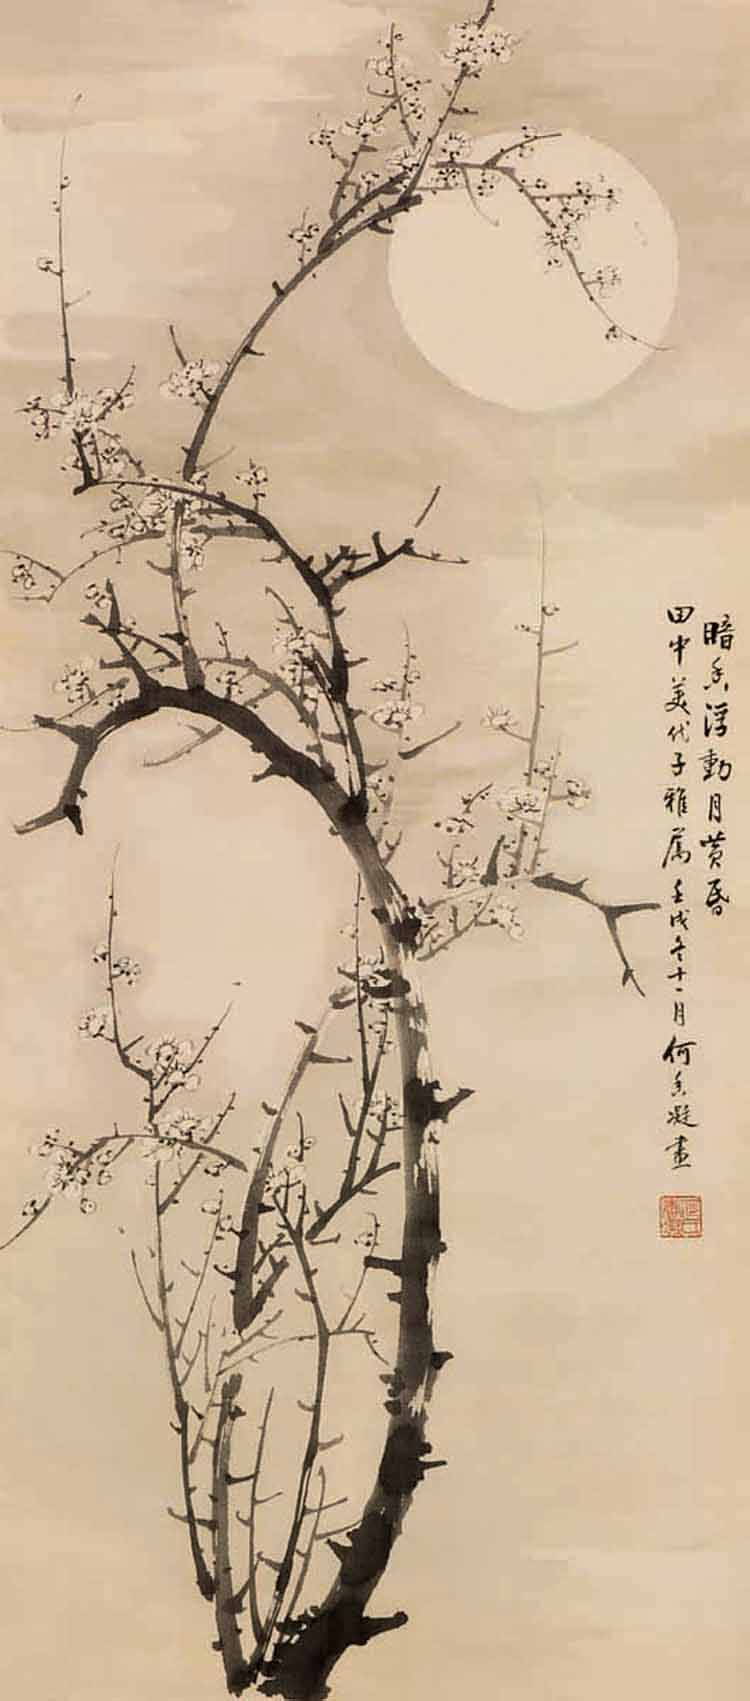 暗香浮動月黄昏
田中美代子雅属 壬戌冬十一月何香凝畫